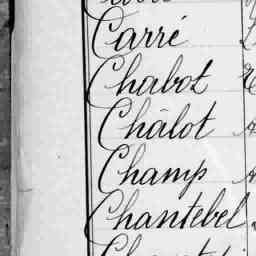 Carré
Chabot
Châlot
Champ
Chantebel